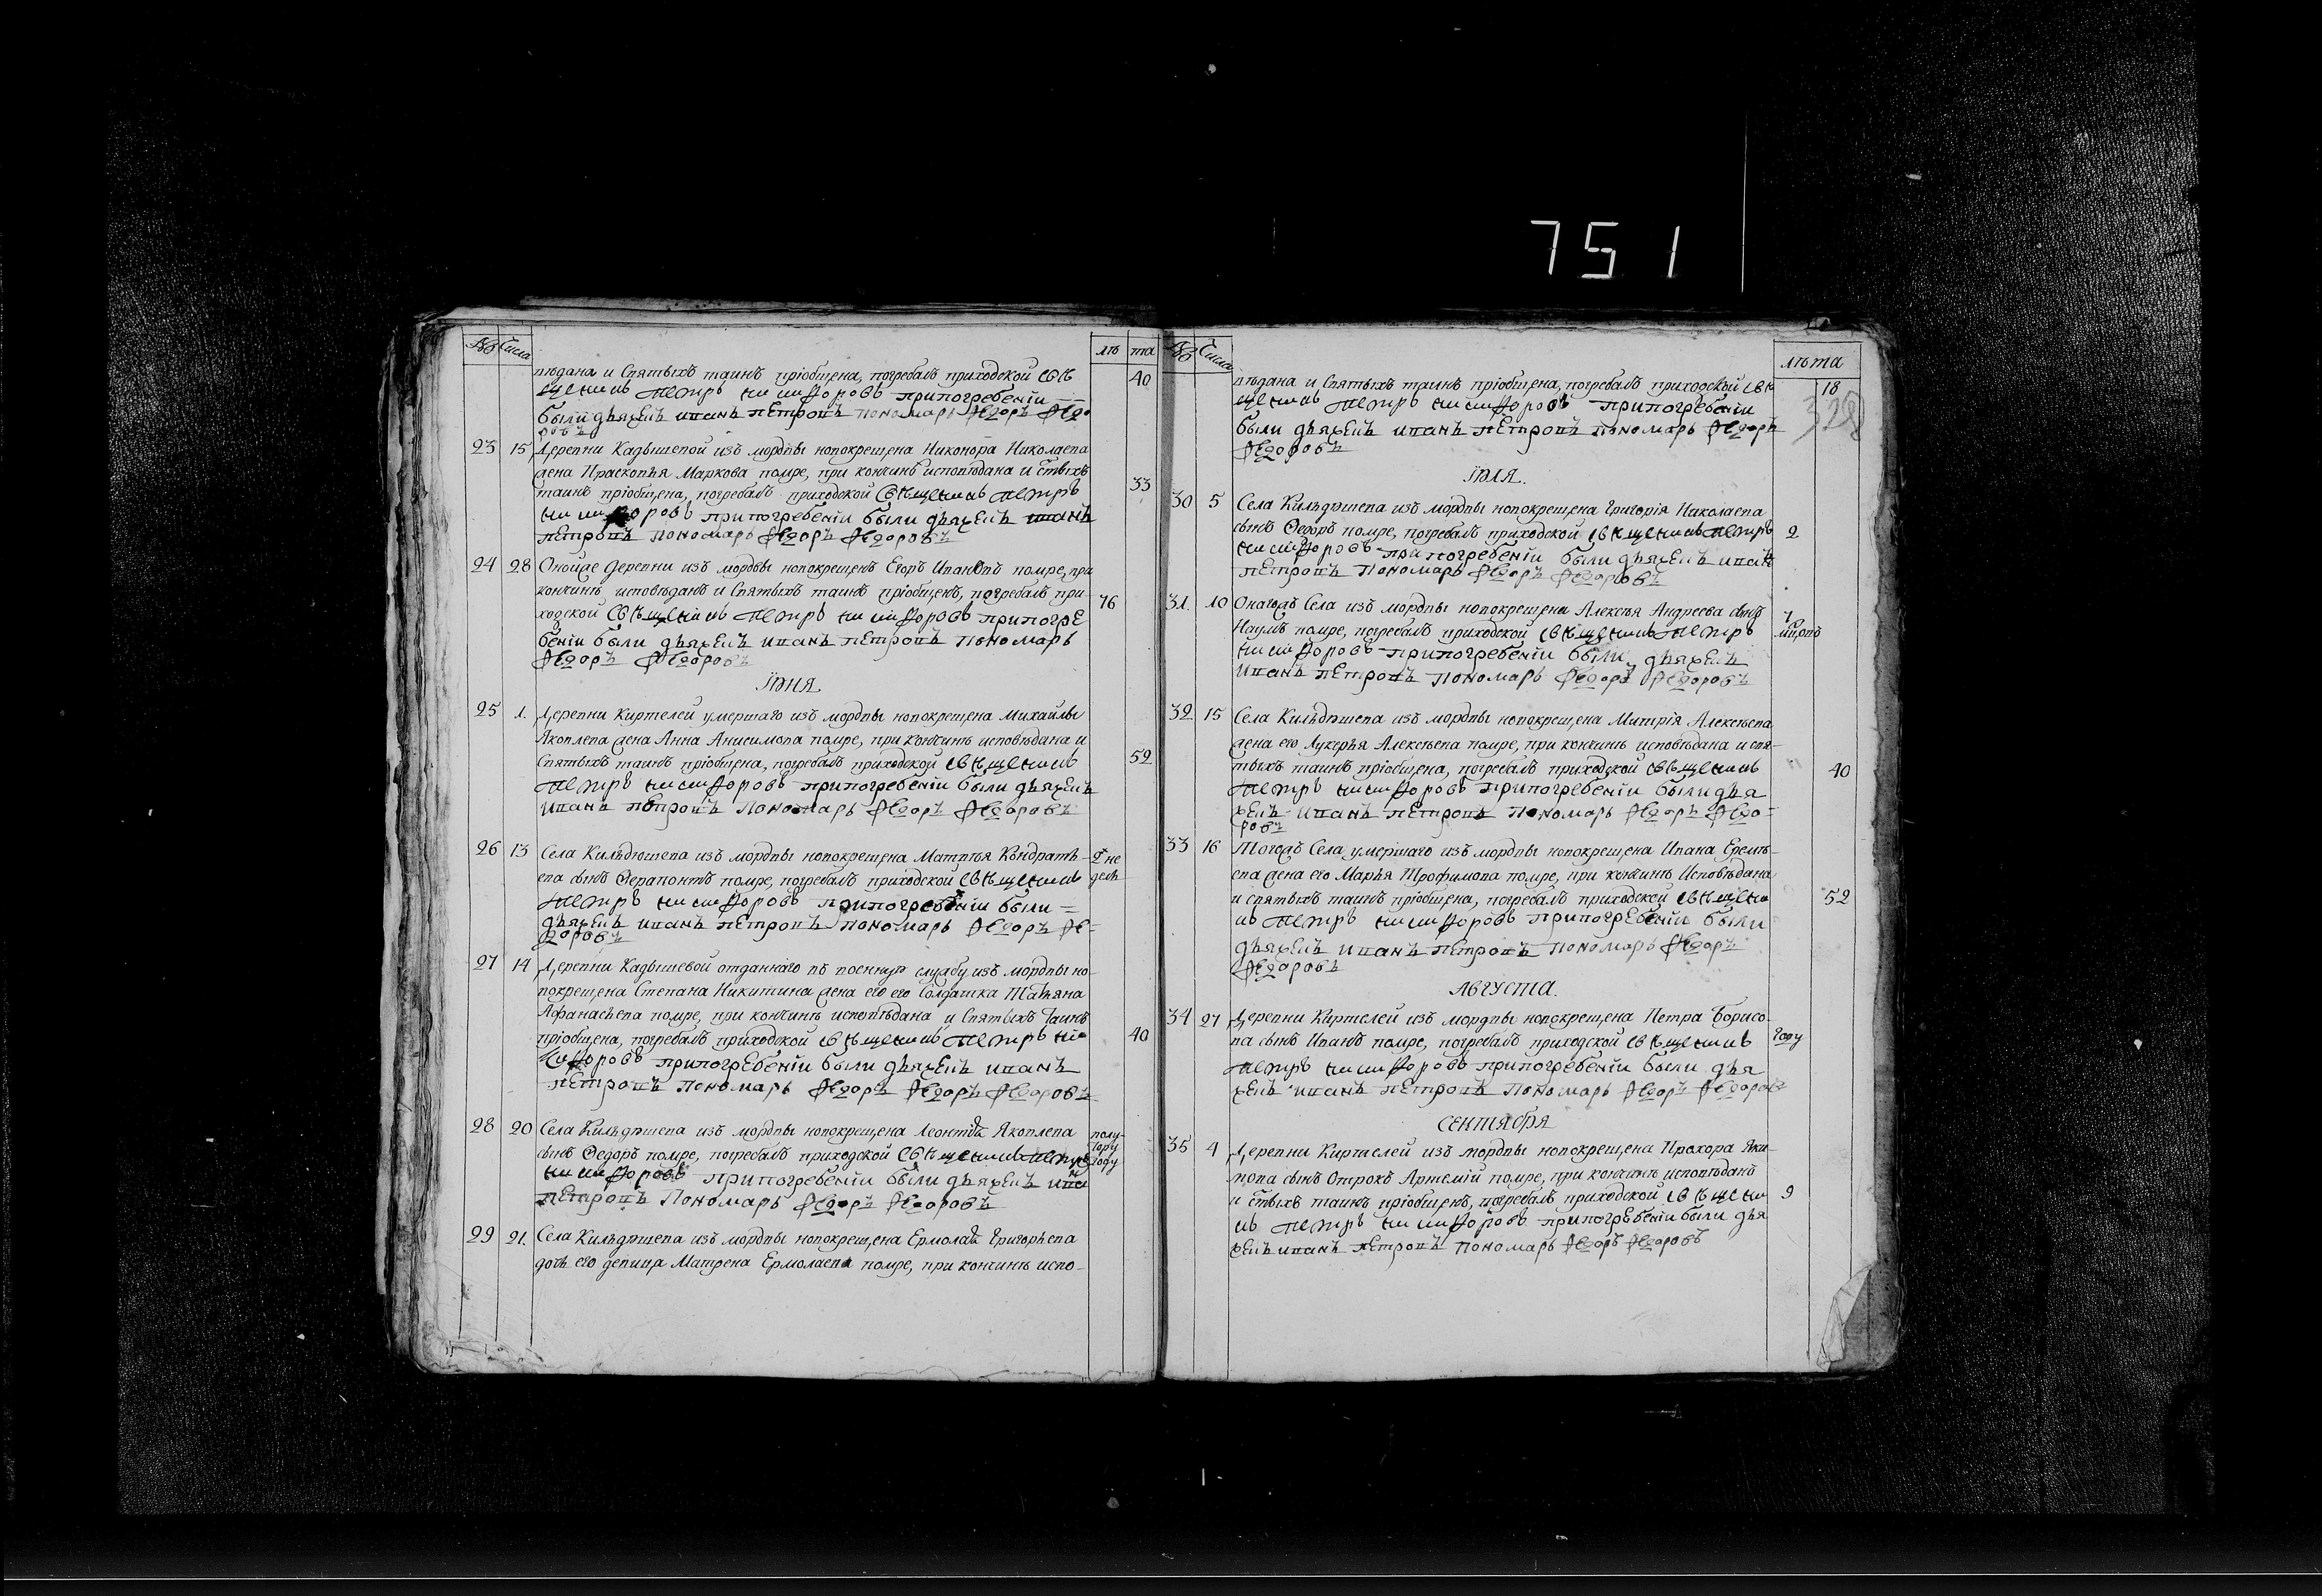 751
№ Числа
лѣ та
вѣдана и Святыхъ таинъ прiобщена, погребалъ приходской свѣ
40
щенникъ Петръ Никифоровъ припогребенiи
были дьячекъ иванъ петровъ пономарь Федоръ Федо
ровъ
23 15 Деревни Кадышевой изъ мордвы новокрещена Никонора Николаева
жена Прасковья Маркова помре, при кончинѣ исповѣдана и Стыхъ
таинъ прiобщена, погребалъ приходской Священникъ Петръ 33
Никифоровъ припогребенiи были дьячекъ иванъ
петровъ пономарь Федоръ Федоровъ
24 28 Оной же деревни изъ мордвы новокрещенъ Егоръ Ивановъ помре, при
кончинѣ исповѣданъ и Святыхъ таинъ прiобщенъ, погребалъ при- 76
ходской Свѣщенникъ Петръ Никифоровъ припогре
бенiи были дьячекъ иванъ петровъ пономарь
Федоръ Федоровъ
Iюня
25 1. Деревни Киртелей умершаго изъ мордвы новокрещена Михайлы
Яковлева жена Анна Анисимова помре, при кончинѣ исповѣдана и
Святыхъ таинъ прiобщена, погребалъ приходской свѣщенникъ 52
Петръ Никифоровъ припогребенiи были дьячекъ
иванъ петровъ пономарь Федоръ Федоровъ
26 13 Села Кильдюшева изъ мордвы новокрещена Матвѣя Кондратъ- 2 не
ева сынъ Ферапонтъ помре, погребалъ приходской свѣщенникъ дель
Петръ Никифоровъ припогребенiи были
дьячекъ иванъ петровъ пономарь Федоръ Фе-
доровъ
27 14 Деревни Кадышевой отданнаго въ военную службу изъ мордвы но-
вокрещена Степана Никитина жена его его Солдатка Татьяна
Афанасьева помре, при кончинѣ исповѣдана и Святыхъ Таинъ
прiобщена, погребалъ приходской свѣщенникъ Петръ Ни 40
кифоровъ припогребенiи были дьячекъ иванъ
петровъ пономарь Федоръ Федоръ Федоровъ
28 20 Села Кильдюшева изъ мордвы новокрещена Леонтiя Яковлева полу-
сынъ Федоръ помре, погребалъ приходской Свѣщенникъ Петръ тору
Никифоровъ припогребенiи были дьячекъ иванъ году
петровъ Пономарь Федоръ Федоровъ
29 21. Села Кильдюшева изъ мордвы новокрещена Ермолая Григорьева
дочь его девица Матрена Ермолаева помре, при кончинѣ испо-
№ Числа
лѣта
вѣдана и Святыхъ таинъ прiобщена, погребалъ приходской свѣ 18
щенникъ Петръ Никифоровъ припогребенiи
были дьячекъ иванъ петровъ пономарь Федоръ
Федоровъ
Iюля.
30 5 Села Кильдюшева изъ мордвы новокрещена Григорiя Николаева
сынъ Федоръ помре, погребалъ приходской свѣщенникъ Петръ 2
Никифоровъ припогребенiи были дьячекъ иванъ
петровъ пономарь Федоръ Федоровъ
31. 10 Онагожъ Села изъ мордвы новокрещена Алексѣя Андреева сынъ
Наумъ помре, погребалъ приходской свѣщенникъ Петръ
Никифоровъ припогребенiи были дьячекъ
иванъ петровъ пономарь Федоръ Федоровъ
32 15 Села Кильдюшева изъ мордвы новокрещена Митрiя Алексѣева
жена его Лукерья Алексѣева помре, при кончинѣ исповѣдана и свя-
тыхъ таинъ прiобщена, погребалъ приходской свѣщенникъ 40
Петръ Никифоровъ припогребенiи были дья
чекъ иванъ петровъ пономарь Федоръ Федо-
ровъ
33 16 Тогожъ Села умершаго изъ мордвы новокрещена Ивана Еремѣ-
ева жена его Марья Трофимова помре, при кончинѣ Исповѣдана
и святыхъ таинъ прiобщена, погребалъ приходской свѣщенни 52
къ Петръ Никифоровъ припогребенiи были
дьячекъ иванъ петровъ пономарь Федоръ
Федоровъ
Августа.
34 27 Деревни Киртелей изъ мордвы новокрещена Петра Борисо-
ва сынъ Иванъ помре, погребалъ приходской свѣщенникъ году
Петръ Никифоровъ припогребенiи были дья
чекъ иванъ петровъ пономарь Федоръ Федоровъ
Сентября
35 4 Деревни Киртелей изъ мордвы новокрещена Прохора Яки-
мова сынъ Отрокъ Артемiй помре, при кончинѣ исповѣданъ
и стыхъ таинъ прiобщенъ, погребалъ приходской свѣщенни 9
къ Петръ Никифоровъ припогребенiи были дья
чекъ иванъ петровъ пономарь Федоръ Федоровъ